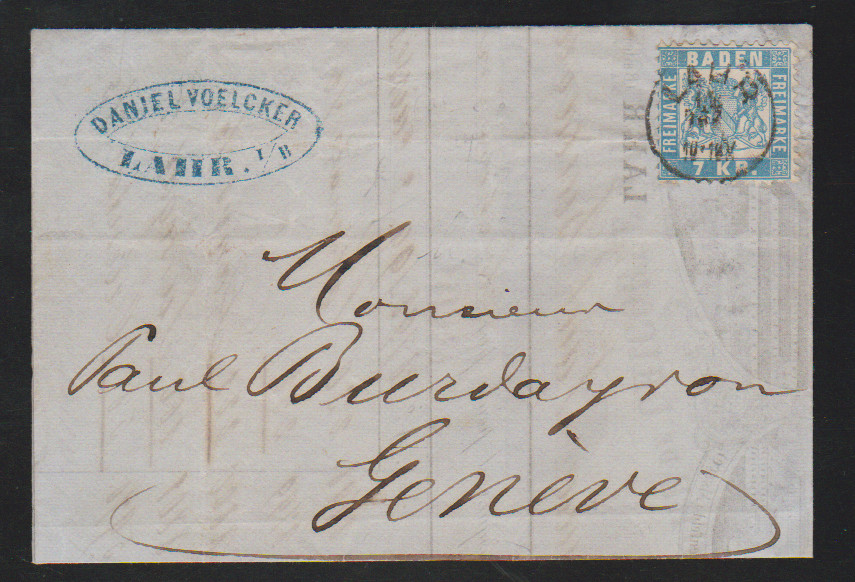 DANIEL VOELCKER
LAHR. I/B
BADEN
FREIMARKE
FREIMARKE
7 KR.
LAHR
LAHR
Monsieur
Paul Burdayron
Genève